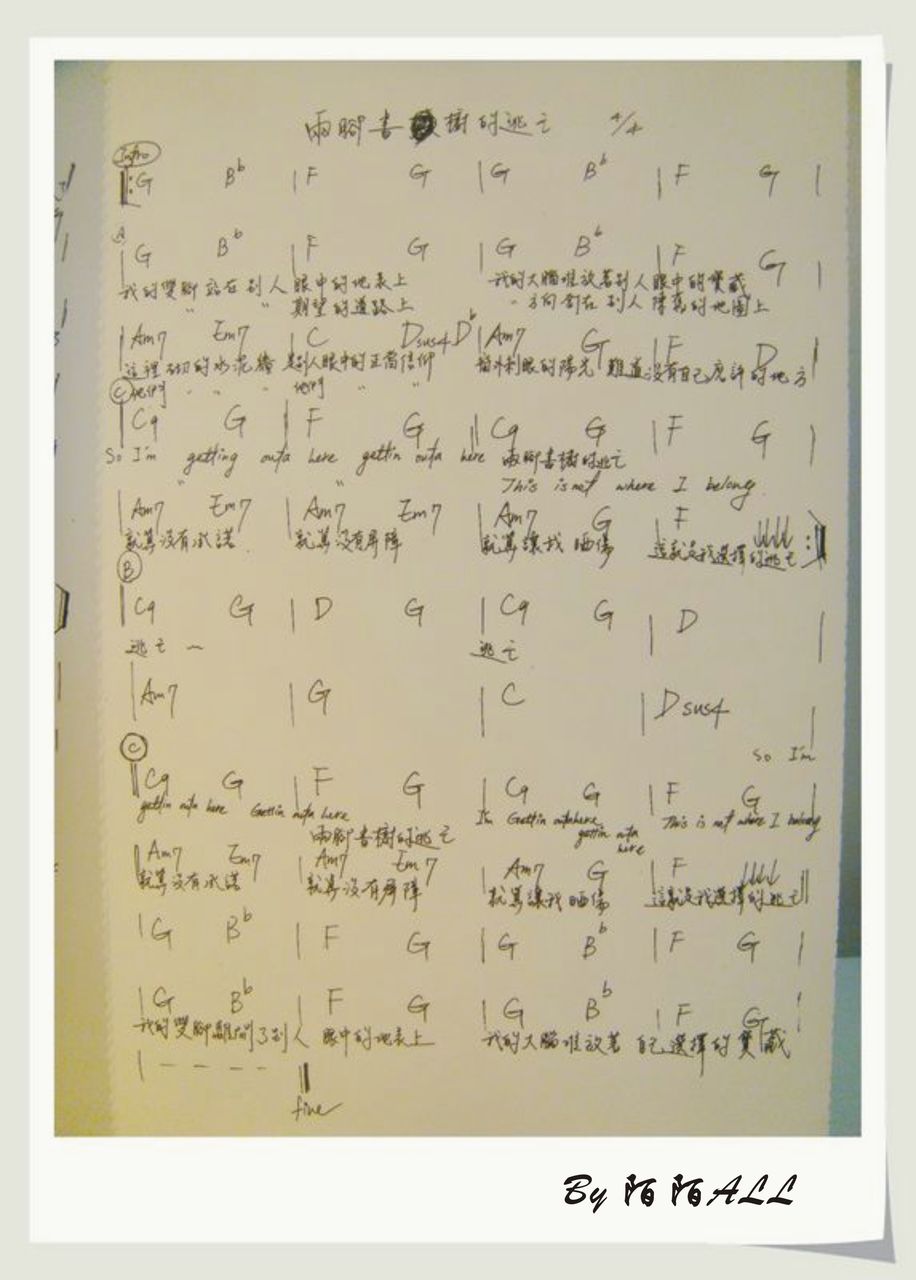 兩腳書樹的逃亡 4/4
Intro
G Bb F G G Bb F G
A
G Bb F G G Bb F G
我的雙腳站在別人眼中的地表上 我的大腦堆放著別人眼中的寶藏
" " 期望的道路上 " 方向卻在別人 的地圖上
Am7 Em7 C Dsus4 Db Am7 G F D
這裡 的水泥牆 是別人眼中的正當信仰 窗外刺眼的陽光 難道沒有自己允許的地方
C 他們 " " " 他們 " "
C9 G F G C9 G F G
So I'm getting outa here gettin outa here 兩腳書樹的逃亡
" " This is not where I belong
Am7 Em7 Am7 Em7 Am7 G F
就算沒有承諾 就算沒有屏障 就算讓我曬傷 這就是我選擇的逃亡
B
C9 G D G C9 G D
逃亡~ 逃亡
Am7 G C Dsus4
C So I'm
C9 G F G C9 G F G
gettin outa here Gettin outa here I'm Gettin outa here This is not where I belong
兩腳書樹的逃亡 gettin outa here
Am7 Em7 Am7 Em7 Am7 G F
就算沒有承諾 就算沒有屏障 就算讓我曬傷 這就是我選擇的逃亡
G Bb F G G Bb F G
G Bb F G G Bb F G
我的雙腳離開了別人眼中的地表上 我的大腦堆放著自己選擇的寶藏
fine
By 陌陌ALL